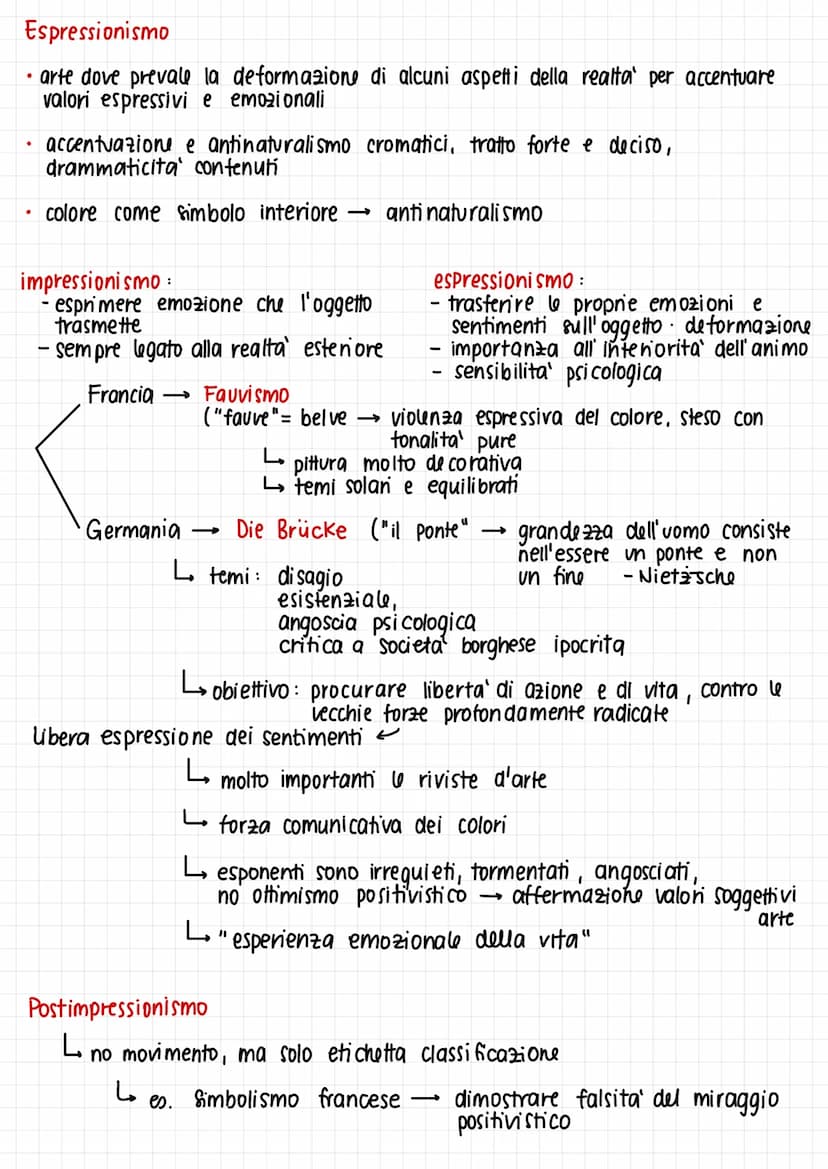 Espressionismo
• arte dove prevale la deformazione di alcuni aspetti della realta' per accentuare
valori espressivi e emozionali
• accentuazione e antinaturalismo cromatici, tratto forte e deciso,
drammaticita' contenuti
• colore come simbolo interiore → antinaturalismo
impressionismo:
- esprimere emozione che l'oggetto
trasmette
- sempre legato alla realta' esteriore
espressionismo:
- trasferire le proprie emozioni e
sentimenti sull'oggetto · deformazione
- importanza all'interiorita' dell'animo
- sensibilita' psicologica
Francia → Fauvismo
("fauve" = belve → violenza espressiva del colore, steso con
tonalita' pure
↳ pittura molto decorativa
↳ temi solari e equilibrati
Germania → Die Brücke ("il ponte" → grandezza dell'uomo consiste
nell'essere un ponte e non
un fine - Nietzsche
↳ temi: disagio
esistenziale,
angoscia psicologica
critica a societa' borghese ipocrita
↳ obiettivo: procurare liberta' di azione e di vita, contro le
vecchie forze profondamente radicate
libera espressione dei sentimenti ↵
↳ molto importanti le riviste d'arte
↳ forza comunicativa dei colori
↳ esponenti sono irrequieti, tormentati, angosciati,
no ottimismo positivistico → affermazione valori soggettivi
arte
↳ "esperienza emozionale della vita"
Postimpressionismo
↳ no movimento, ma solo etichetta classificazione
↳ es. Simbolismo francese → dimostrare falsita' del miraggio
positivistico